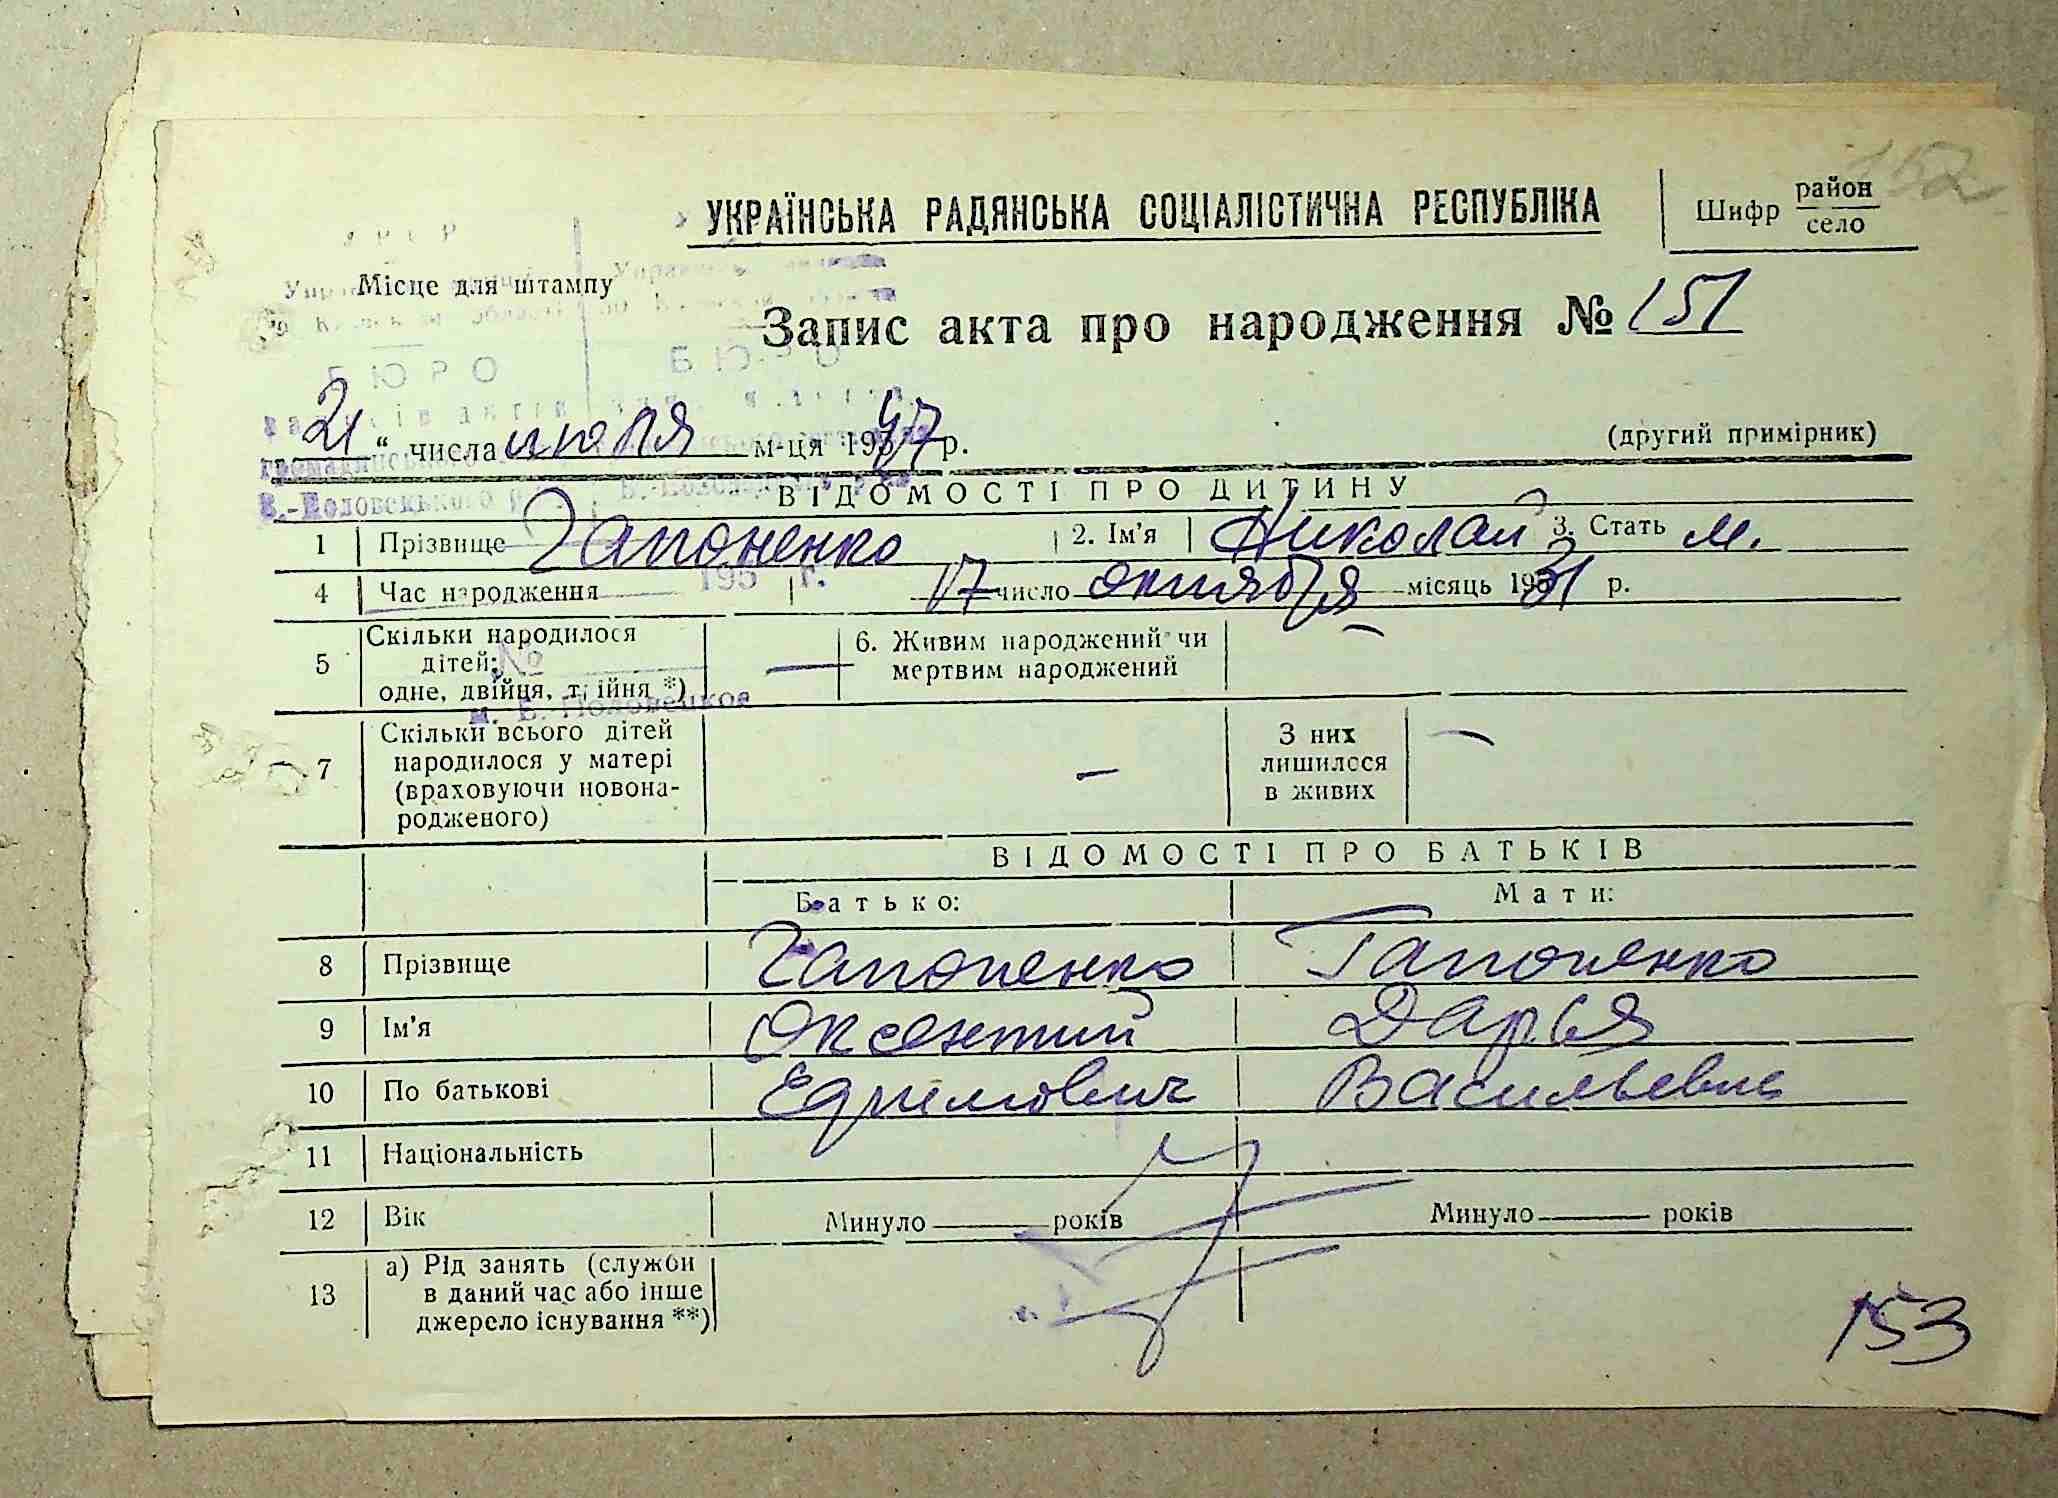 152
УКРАЇНСЬКА РАДЯНСЬКА СОЦІАЛІСТИЧНА РЕСПУБЛІКА
Шифр район
село
Місце для штампу
Запис акта про народження № 151
БЮРО БЮРО
21 “ числа июля м-ця 1947 р.
(другий примірник)
В.-Половецького
ВІДОМОСТІ ПРО ДИТИНУ
1 Прізвище Гапоненко 2. Ім'я Николай 3. Стать м.
195 г.
4 Час народження 17 число октября місяць 1931 р.
5 Скільки народилося дітей: одне, двійця, трійня *) — 6. Живим народжений чи мертвим народжений —
№
м. В.-Половецкое
7 Скільки всього дітей народилося у матері (враховуючи новонародженого) — З них лишилося в живих —
ВІДОМОСТІ ПРО БАТЬКІВ
Батько: Мати:
8 Прізвище Гапоненко Гапоненко
9 Ім'я Оксентий Дарья
10 По батькові Ефимович Васильевна
11 Національність
12 Вік Минуло років Минуло років
13 а) Рід занять (служби в даний час або інше джерело існування **)
153